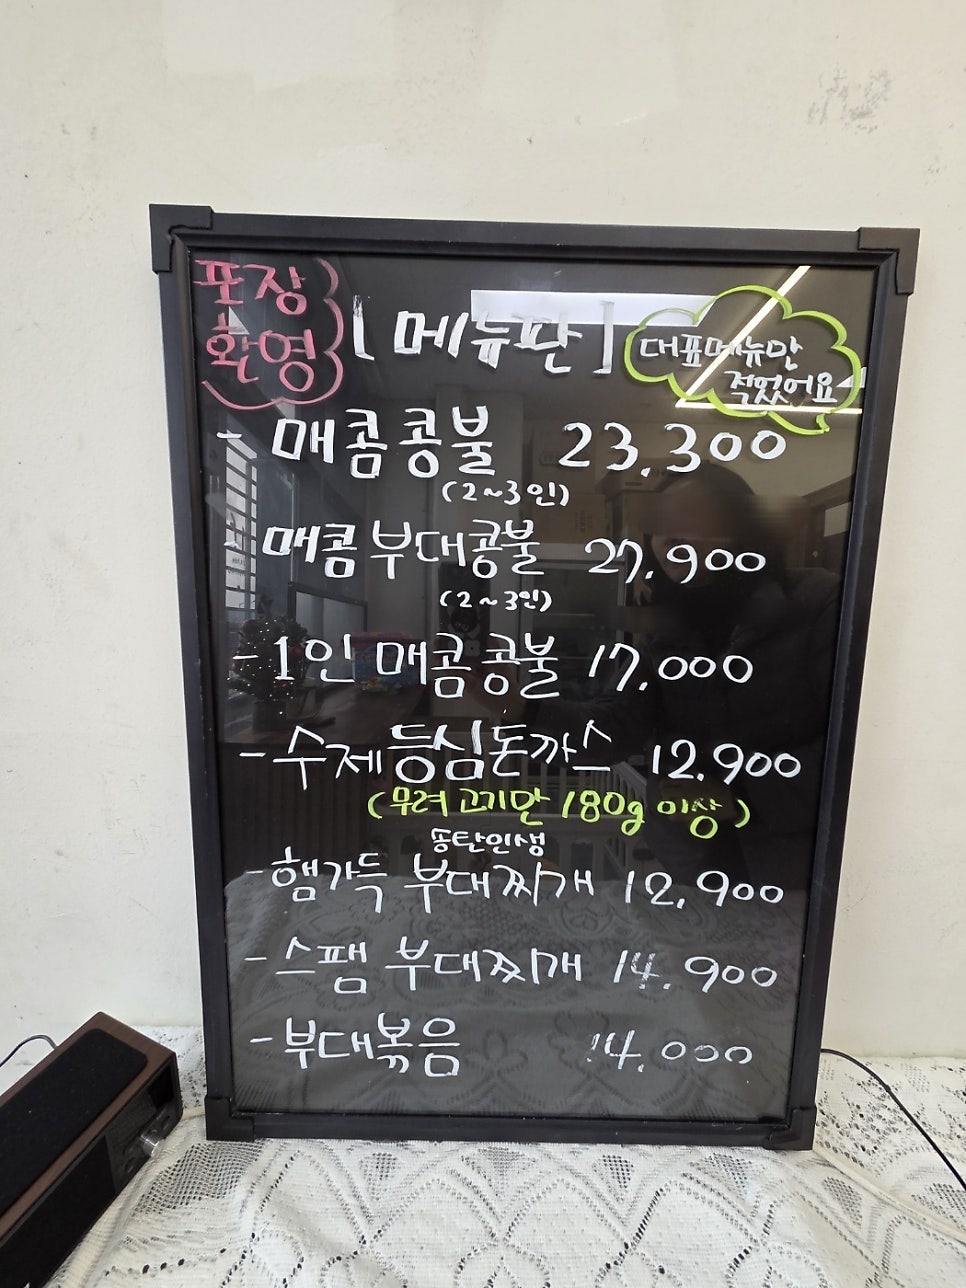 포장
환영
[메뉴판]
대표메뉴만
적었어요
- 매콤콩불 23,300
(2~3인)
- 매콤 부대콩불 27,900
(2~3인)
- 1인 매콤콩불 17,000
- 수제등심돈까스 12,900
(무려 고기만 180g 이상)
송탄인생
- 햄가득 부대찌개 12,900
- 스팸 부대찌개 14,900
- 부대볶음 14,000